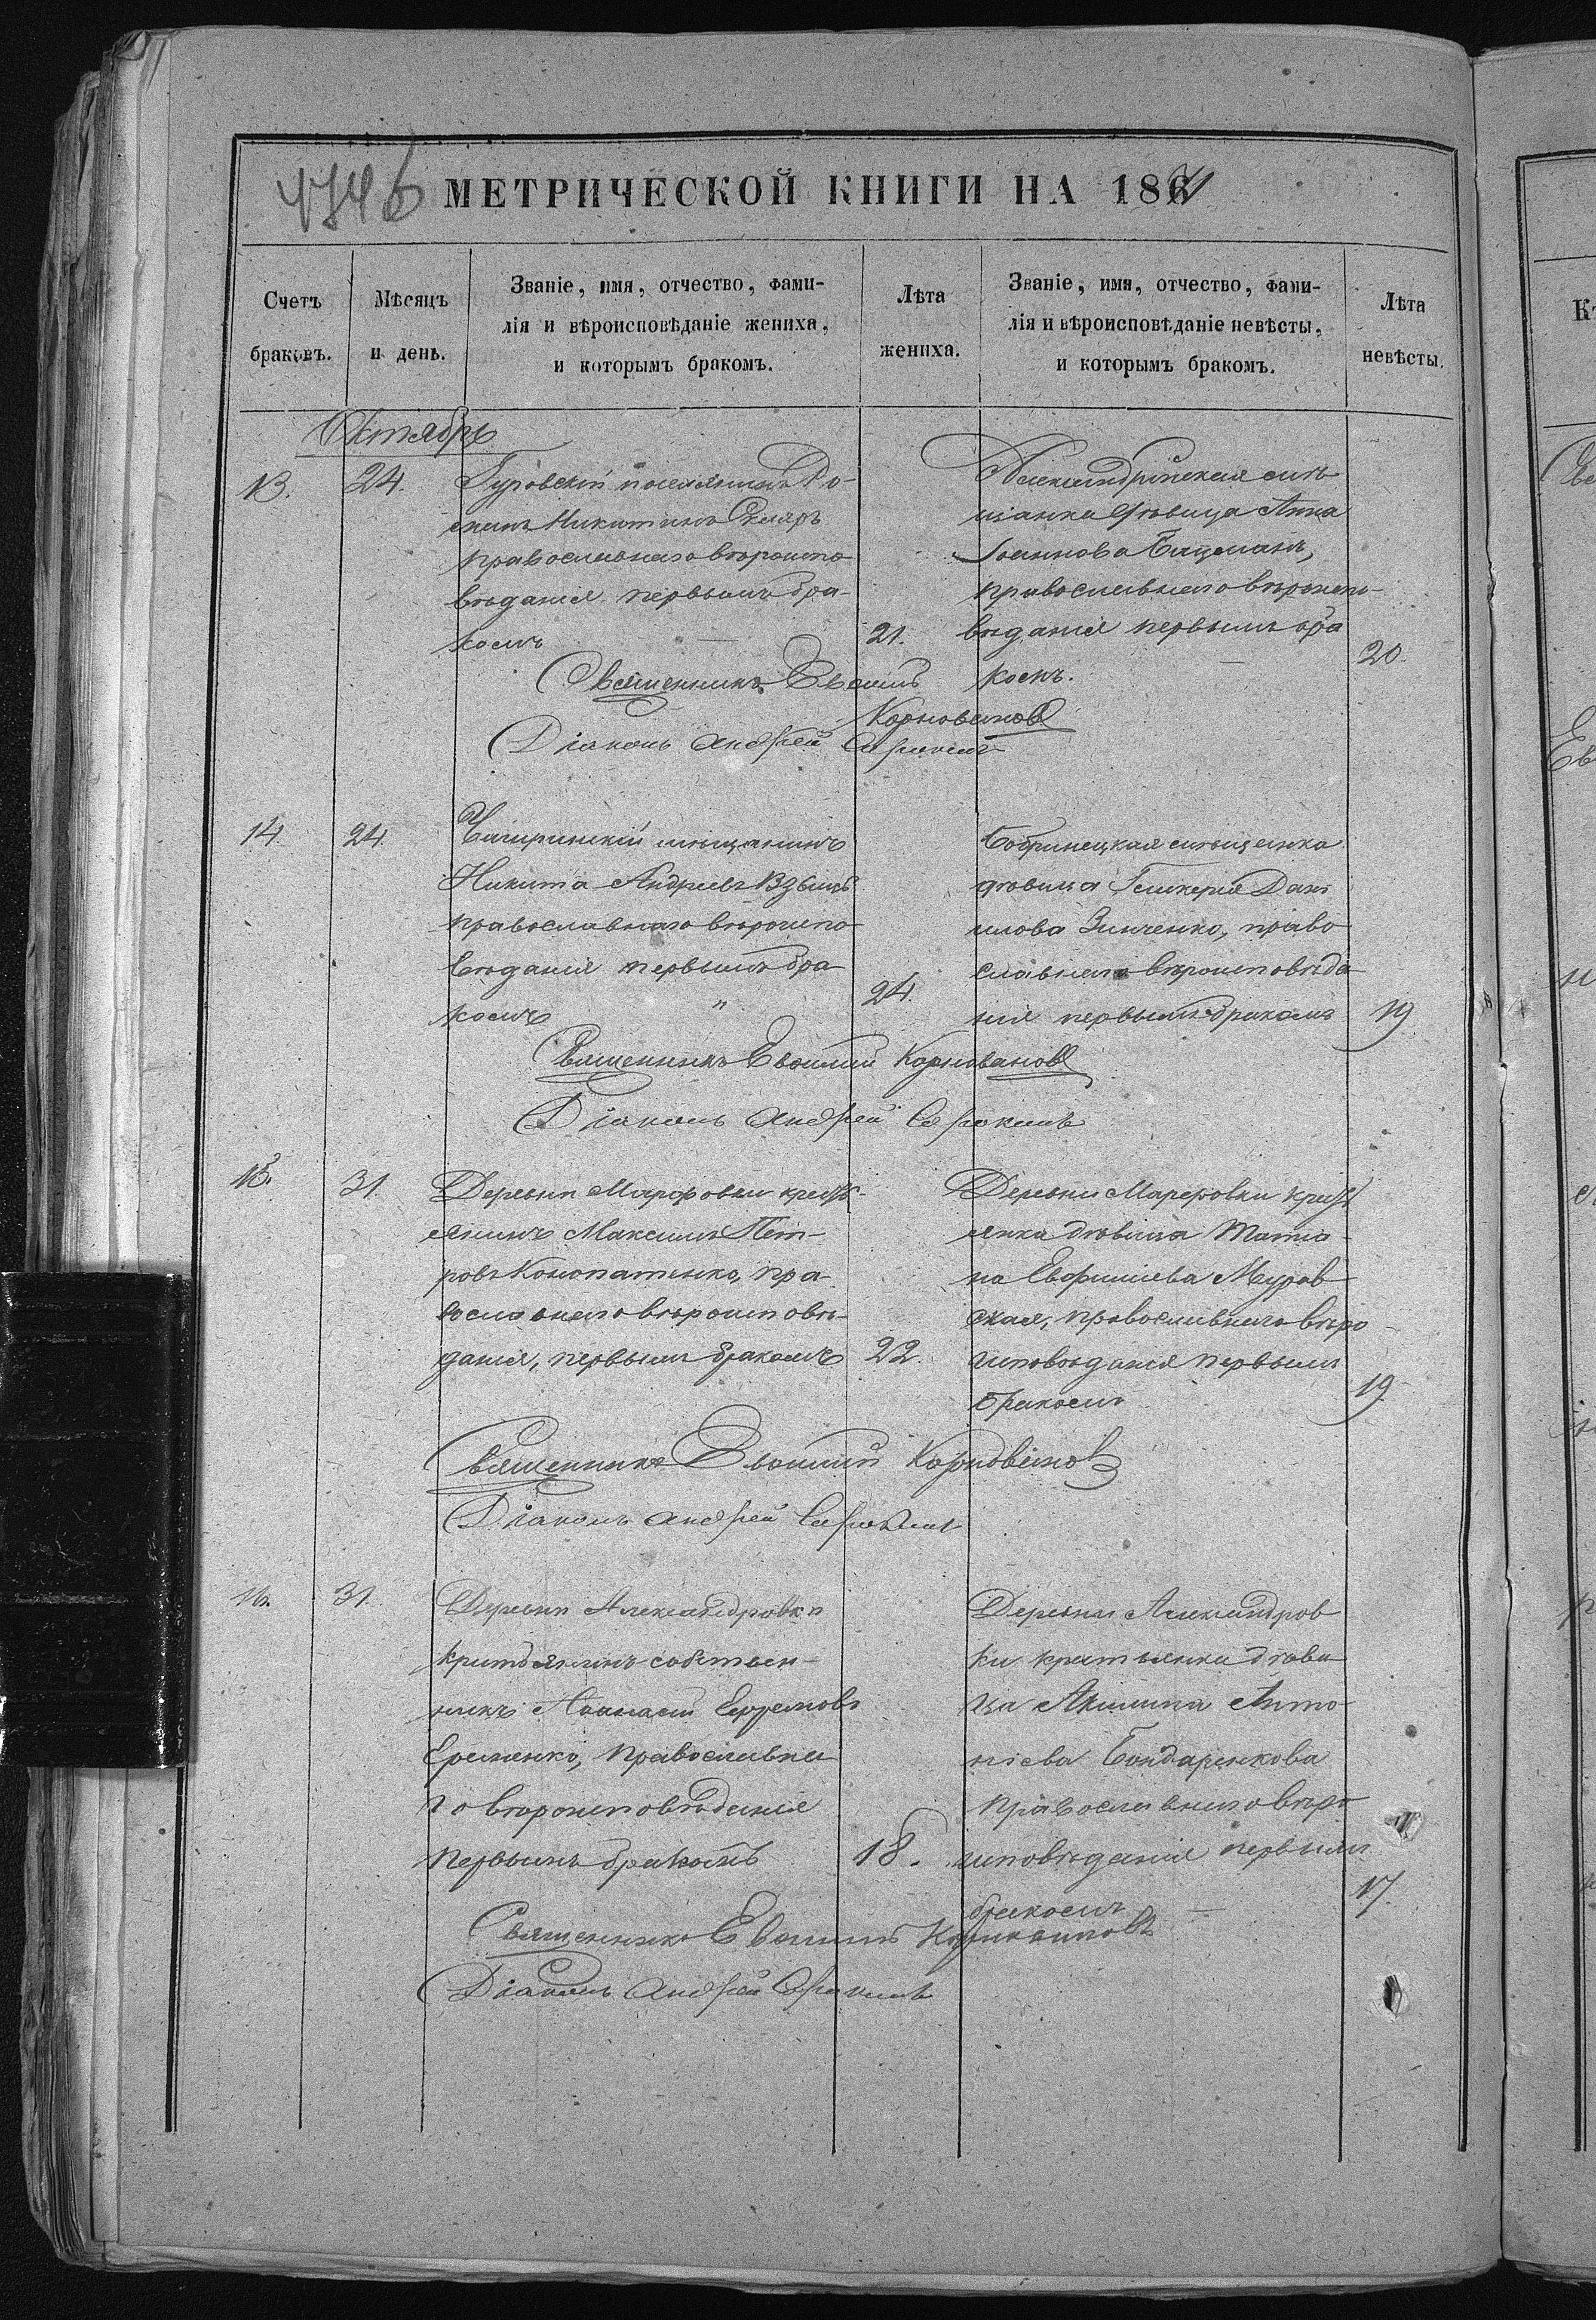 МЕТРИЧЕСКОЙ КНИГИ НА 1871
Счетъ браковъ.
Мѣсяцъ и день.
Званіе, имя, отчество, фами-
лія и вѣроисповѣданіе жениха,
и которымъ бракомъ.
Лѣта жениха.
Званіе, имя, отчество, фами-
лія и вѣроисповѣданіе невѣсты,
и которымъ бракомъ.
Лѣта невѣсты.
Октябрь
13.
24.
Гуровскій поселянинъ
Никитинъ Скляръ
православнаго вѣроиспо
вѣданія первымъ бра-
комъ
21.
Александрійская мѣ
щанка дѣвица Анна
Іоаннова
православнаго вѣроиспо-
вѣданія первымъ бра
комъ.
20.
Священникъ
Діаконъ Андрей
14.
24.
Чигиринскій мѣщанинъ
Никита Андреевъ
православнаго вѣроиспо
вѣданія первымъ бра
комъ
24.
Бобринецкая мѣщанка
дѣвица Гликерія Дани
лова Зинченко, право
славнаго вѣроисповѣда
нія первымъ бракомъ
19
Священникъ
Діаконъ Андрей
15.
31.
Деревни Марфовки крестъ-
янинъ Максимъ Пет-
ровъ Конопатенко, пра-
вославнаго вѣроисповѣ-
данія, первымъ бракомъ
22.
Деревни Марфовки крест
янка дѣвица Татіа-
на Евфиміева Муров
ская, православнаго вѣро
исповѣданія первымъ
бракомъ
19
Священникъ
Діаконъ Андрей
16.
31.
Деревни Александровки
крестьянинъ собствен-
никъ Ефремовъ
Еременко, православна
го вѣроисповѣданія
первымъ бракомъ
18.
Деревни Александров
ки крестьянка дѣви
ца Акилина Анто
ніева Бондаренкова
православнаго вѣро
исповѣданія первымъ
бракомъ
17.
Священникъ
Діаконъ Андрей